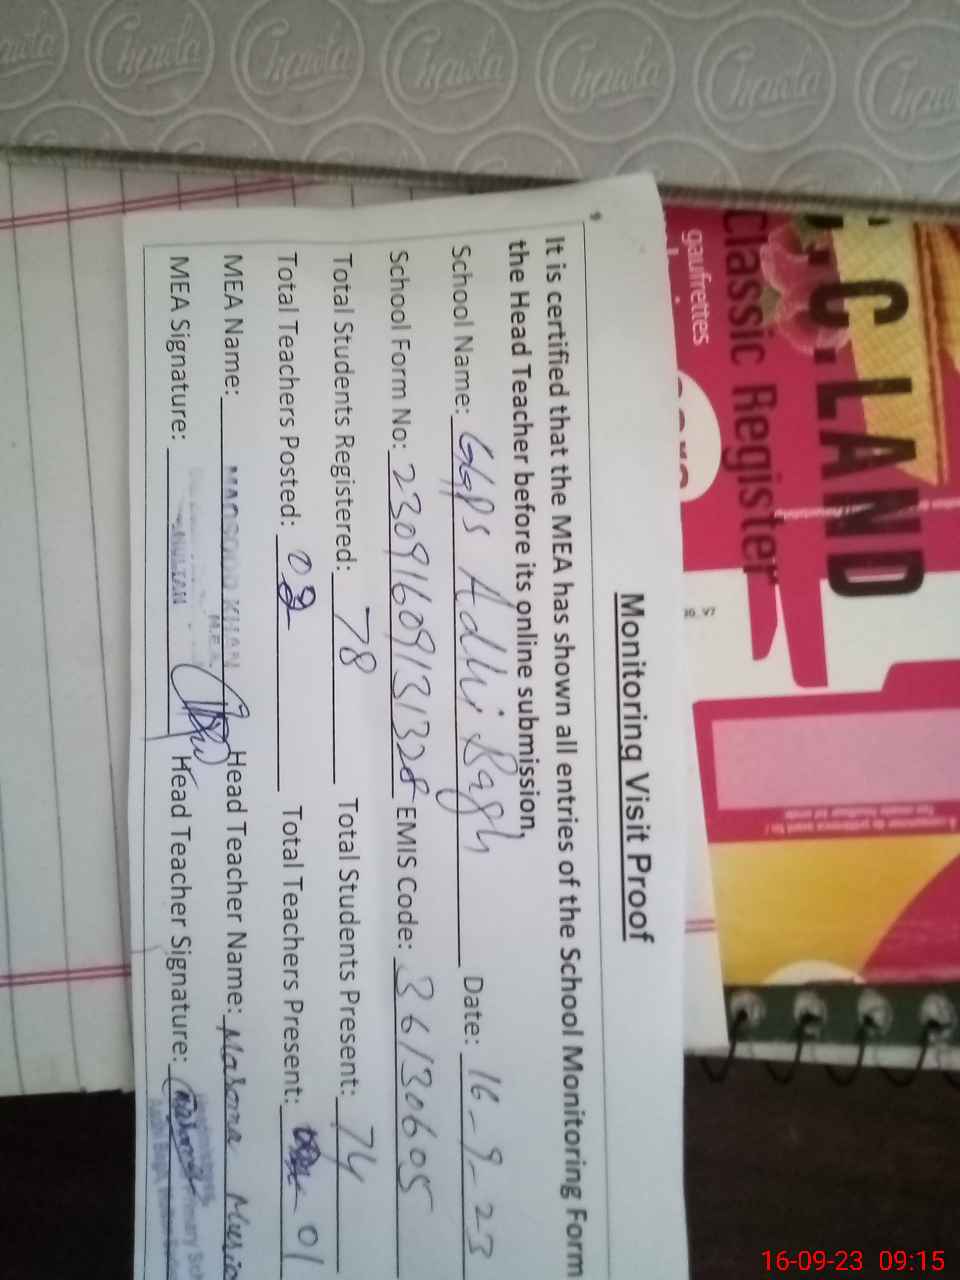 Chenola Chenola Chenola Chenola Chenola
C.LAND
Classic Register
gaufrettes
Monitoring Visit Proof
It is certified that the MEA has shown all entries of the School Monitoring Form
the Head Teacher before its online submission,
School Name: GGPS Adhi Bagh Date: 16-9-23
School Form No: 23091609131328 EMIS Code: 36130605
Total Students Registered: 78 Total Students Present: 74
Total Teachers Posted: 02 Total Teachers Present: 01
MEA Name: MAQSOOD KHAN Head Teacher Name: Masooma
M.E.A
MEA Signature: MULTAN Head Teacher Signature:
16-09-23 09:15